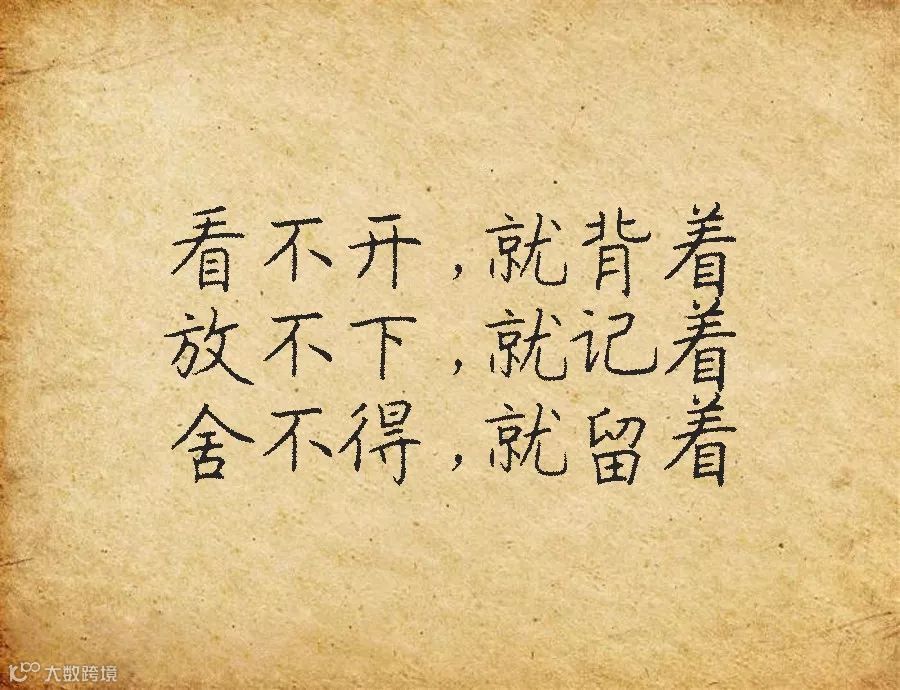 看不开,就背着
放不下,就记着
舍不得,就留着
大数跨境